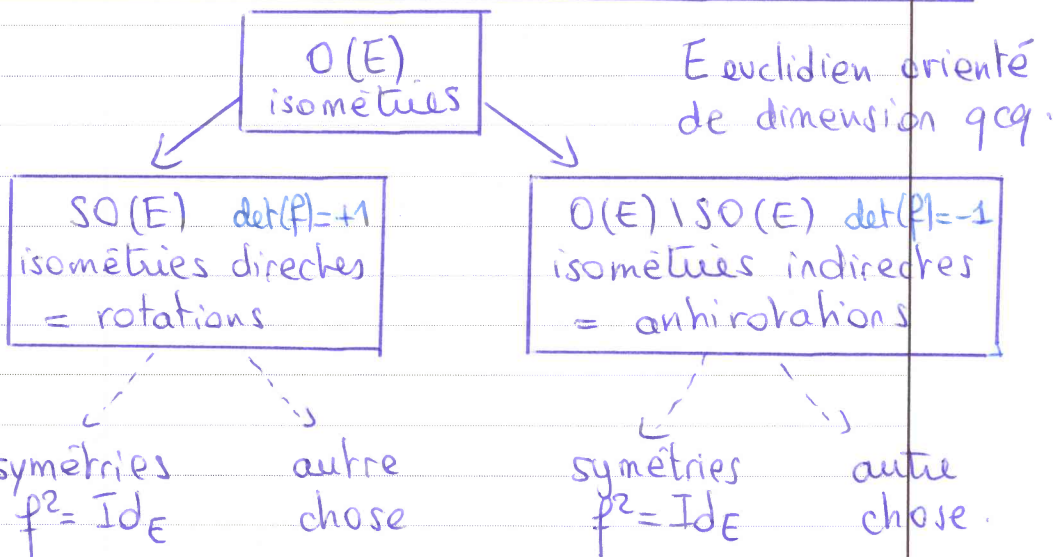 O(E)
isométries
E euclidien orienté
de dimension qcq.
SO(E) det(f)=+1
isométries directes
= rotations
O(E)\SO(E) det(f)=-1
isométries indirectes
= antirotations
symétries
f²=Id_E
autre
chose
symétries
f²=Id_E
autre
chose.